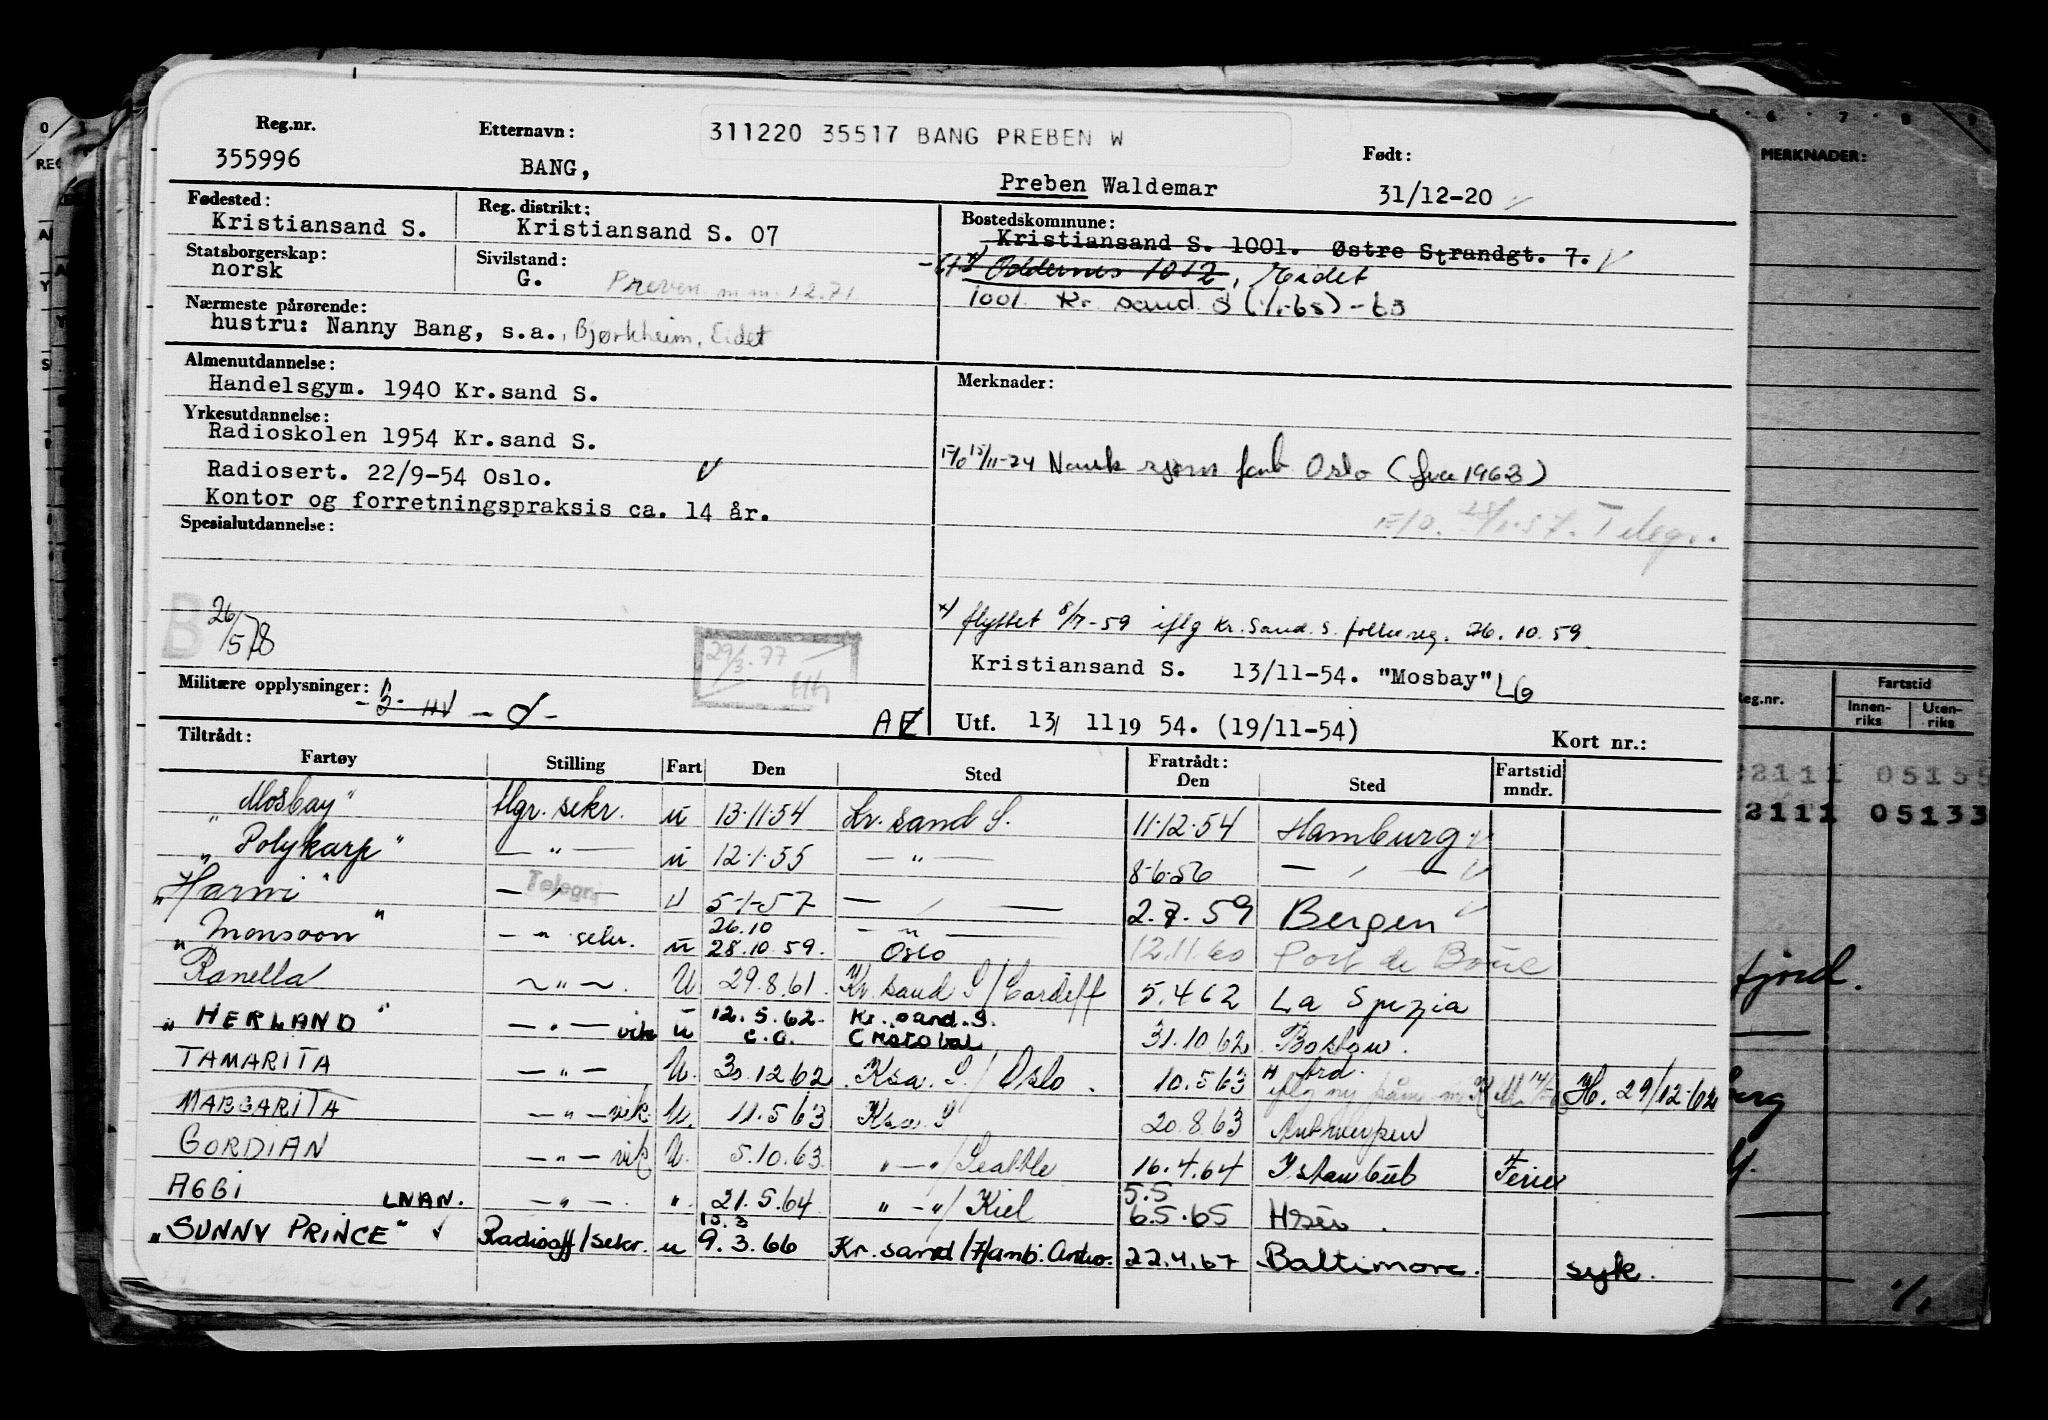 Reg.nr. Etternavn: 311220 35517 BANG PREBEN W Født:
355996 BANG, Preben Waldemar 31/12-20
Fødested: Reg. distrikt: Bostedskommune:
Kristiansand S. Kristiansand S. 07 Kristiansand S. 1001. Østre Strandgt. 7.
Statsborgerskap: Sivilstand: Oddernes 1012, Eidet
norsk G. Preven m.m. 12.71. 1001 Kr. sand S (1/1-65) - 63
Nærmeste pårørende:
hustru: Nanny Bang, s.a., Bjørkheim, Eidet
Almenutdannelse: Merknader:
Handelsgym. 1940 Kr.sand S.
Yrkesutdannelse:
Radioskolen 1954 Kr.sand S.
Radiosert. 22/9-54 Oslo. Norsk sjøm forb Oslo (1963)
Kontor og forretningspraksis ca. 14 år.
Spesialutdannelse: Telegr.
B 26/5 78
x) flyttet 8/7-59 iflg Kr. Sand. S. folkereg. 26.10.59
29/3.77
Kristiansand S. 13/11-54. "Mosbay" LG
Militære opplysninger: -3- HV
Utf. 13/ 11 19 54. (19/11-54) Kort nr.:
Tiltrådt: Fratrådt: Fartstid
Fartøy Stilling Fart Den Sted Den Sted mndr.
"Mosbay" tlgr. sekr. u 13.11.54 Kr. sand S. 11.12.54 Hamburg
"Polykarp" — " — u 12.1.55 — " — 8.6.56 — " —
"Harwi" — " — Telegr. u 5-1-57 — " — 2.7.59 Bergen
"Monsoon" — " — sekr. u 26.10 28.10.59. — " — Oslo 12.11.60 Port de Bouc
Ranella — " — . U 29.8.61 Kr. sand S / Cardiff 5.4.62 La Spezia
"HERLAND" — " — vik u 12.5.62 c.o. Kr. sand. S. Cristobal 31.10.62 Boston.
TAMARITA — " — U. 30.12.62 Ksa. S. / Oslo. 10.5.63 H. 29/12-62
MARGARITA — " — vik. U. 11.5.63 Ksa. S 20.8.63 Antwerpen
GORDIAN — " — vik U. 5.10.63. " — " / Seattle 16.4.64 Istanbul Ferie
AGGI LNAN. — " — . ". 21.5.64 " — " / Kiel 5.5 6.5.65
"SUNNY PRINCE" Radiooff/sekr. u 9.3.66 Kr. sand / Hamb. 22.4.67 Baltimore. syk.
MERKNADER:
Reg.nr. Fartstid
Innenriks Utenriks
22111 05155
2111 05133
fjord.